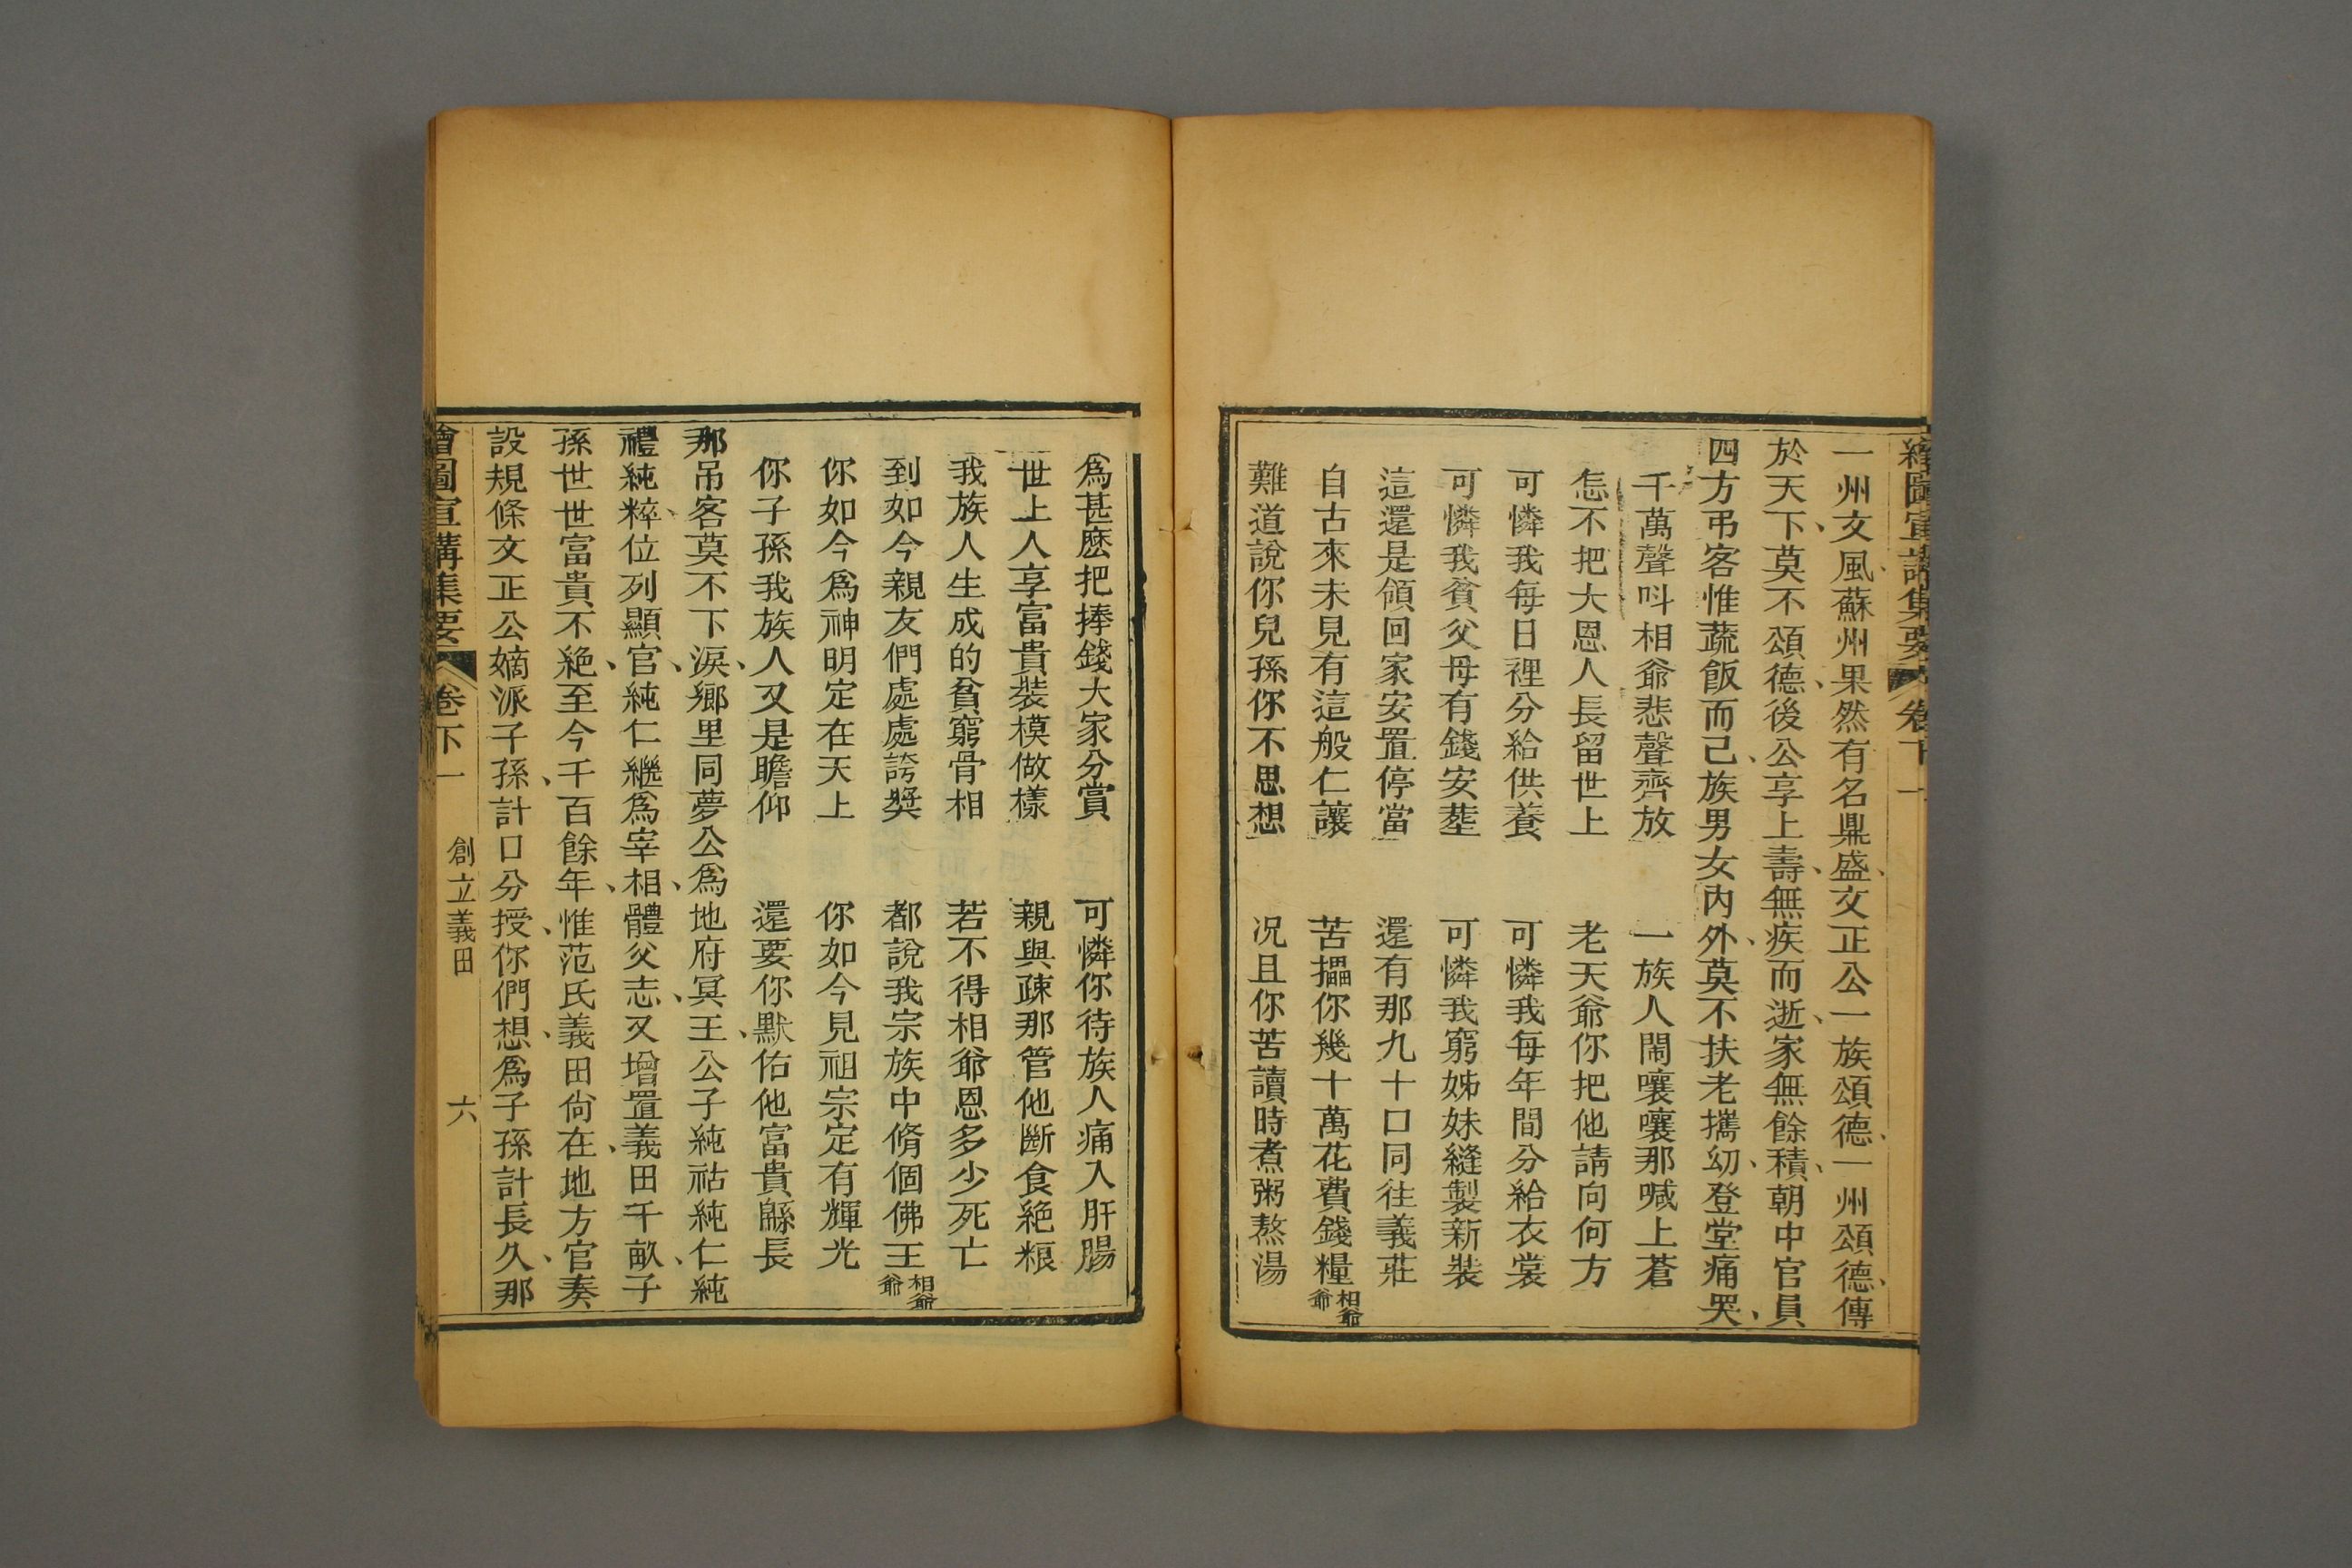 繪圖宣講集要 卷下一
一州文風蘇州果然有名鼎盛文正公一族頌德一州頌德傳
於天下莫不頌德後公享上壽無疾而逝家無餘積朝中官員
四方弔客惟蔬飯而已族男女內外莫不扶老攜幼登堂痛哭
千萬聲呌相爺悲聲齊放 一族人閙嚷嚷那喊上蒼
怎不把大恩人長留世上 老天爺你把他請向何方
可憐我每日裡分給供養 可憐我每年間分給衣裳
可憐我貧父母有錢安塟 可憐我窮姊妹縫製新裝
這還是領回家安置停當 還有那九十口同往義莊
自古來未見有這般仁讓 苦攂你幾十萬花費錢糧相爺爺
難道說你兒孫你不思想 况且你苦讀時煮粥熬湯
爲甚麽把捧錢大家分賞 可憐你待族人痛入肝腸
世上人享富貴裝模做樣 親與疎那管他斷食絕粮
我族人生成的貧窮骨相 若不得相爺恩多少死亡
到如今親友們處處誇奬 都說我宗族中脩個佛王相爺爺
你如今爲神明定在天上 你如今見祖宗定有輝光
你子孫我族人又是瞻仰 還要你默佑他富貴緜長
那吊客莫不下淚鄉里同夢公爲地府冥王公子純祜純仁純
禮純粹位列顯官純仁繼爲宰相體父志又增置義田千畝子
孫世世富貴不絕至今千百餘年惟范氏義田尙在地方官奏
設規條文正公嫡派子孫計口分授你們想爲子孫計長久那
繪圖宣講集要 卷下一 創立義田 六